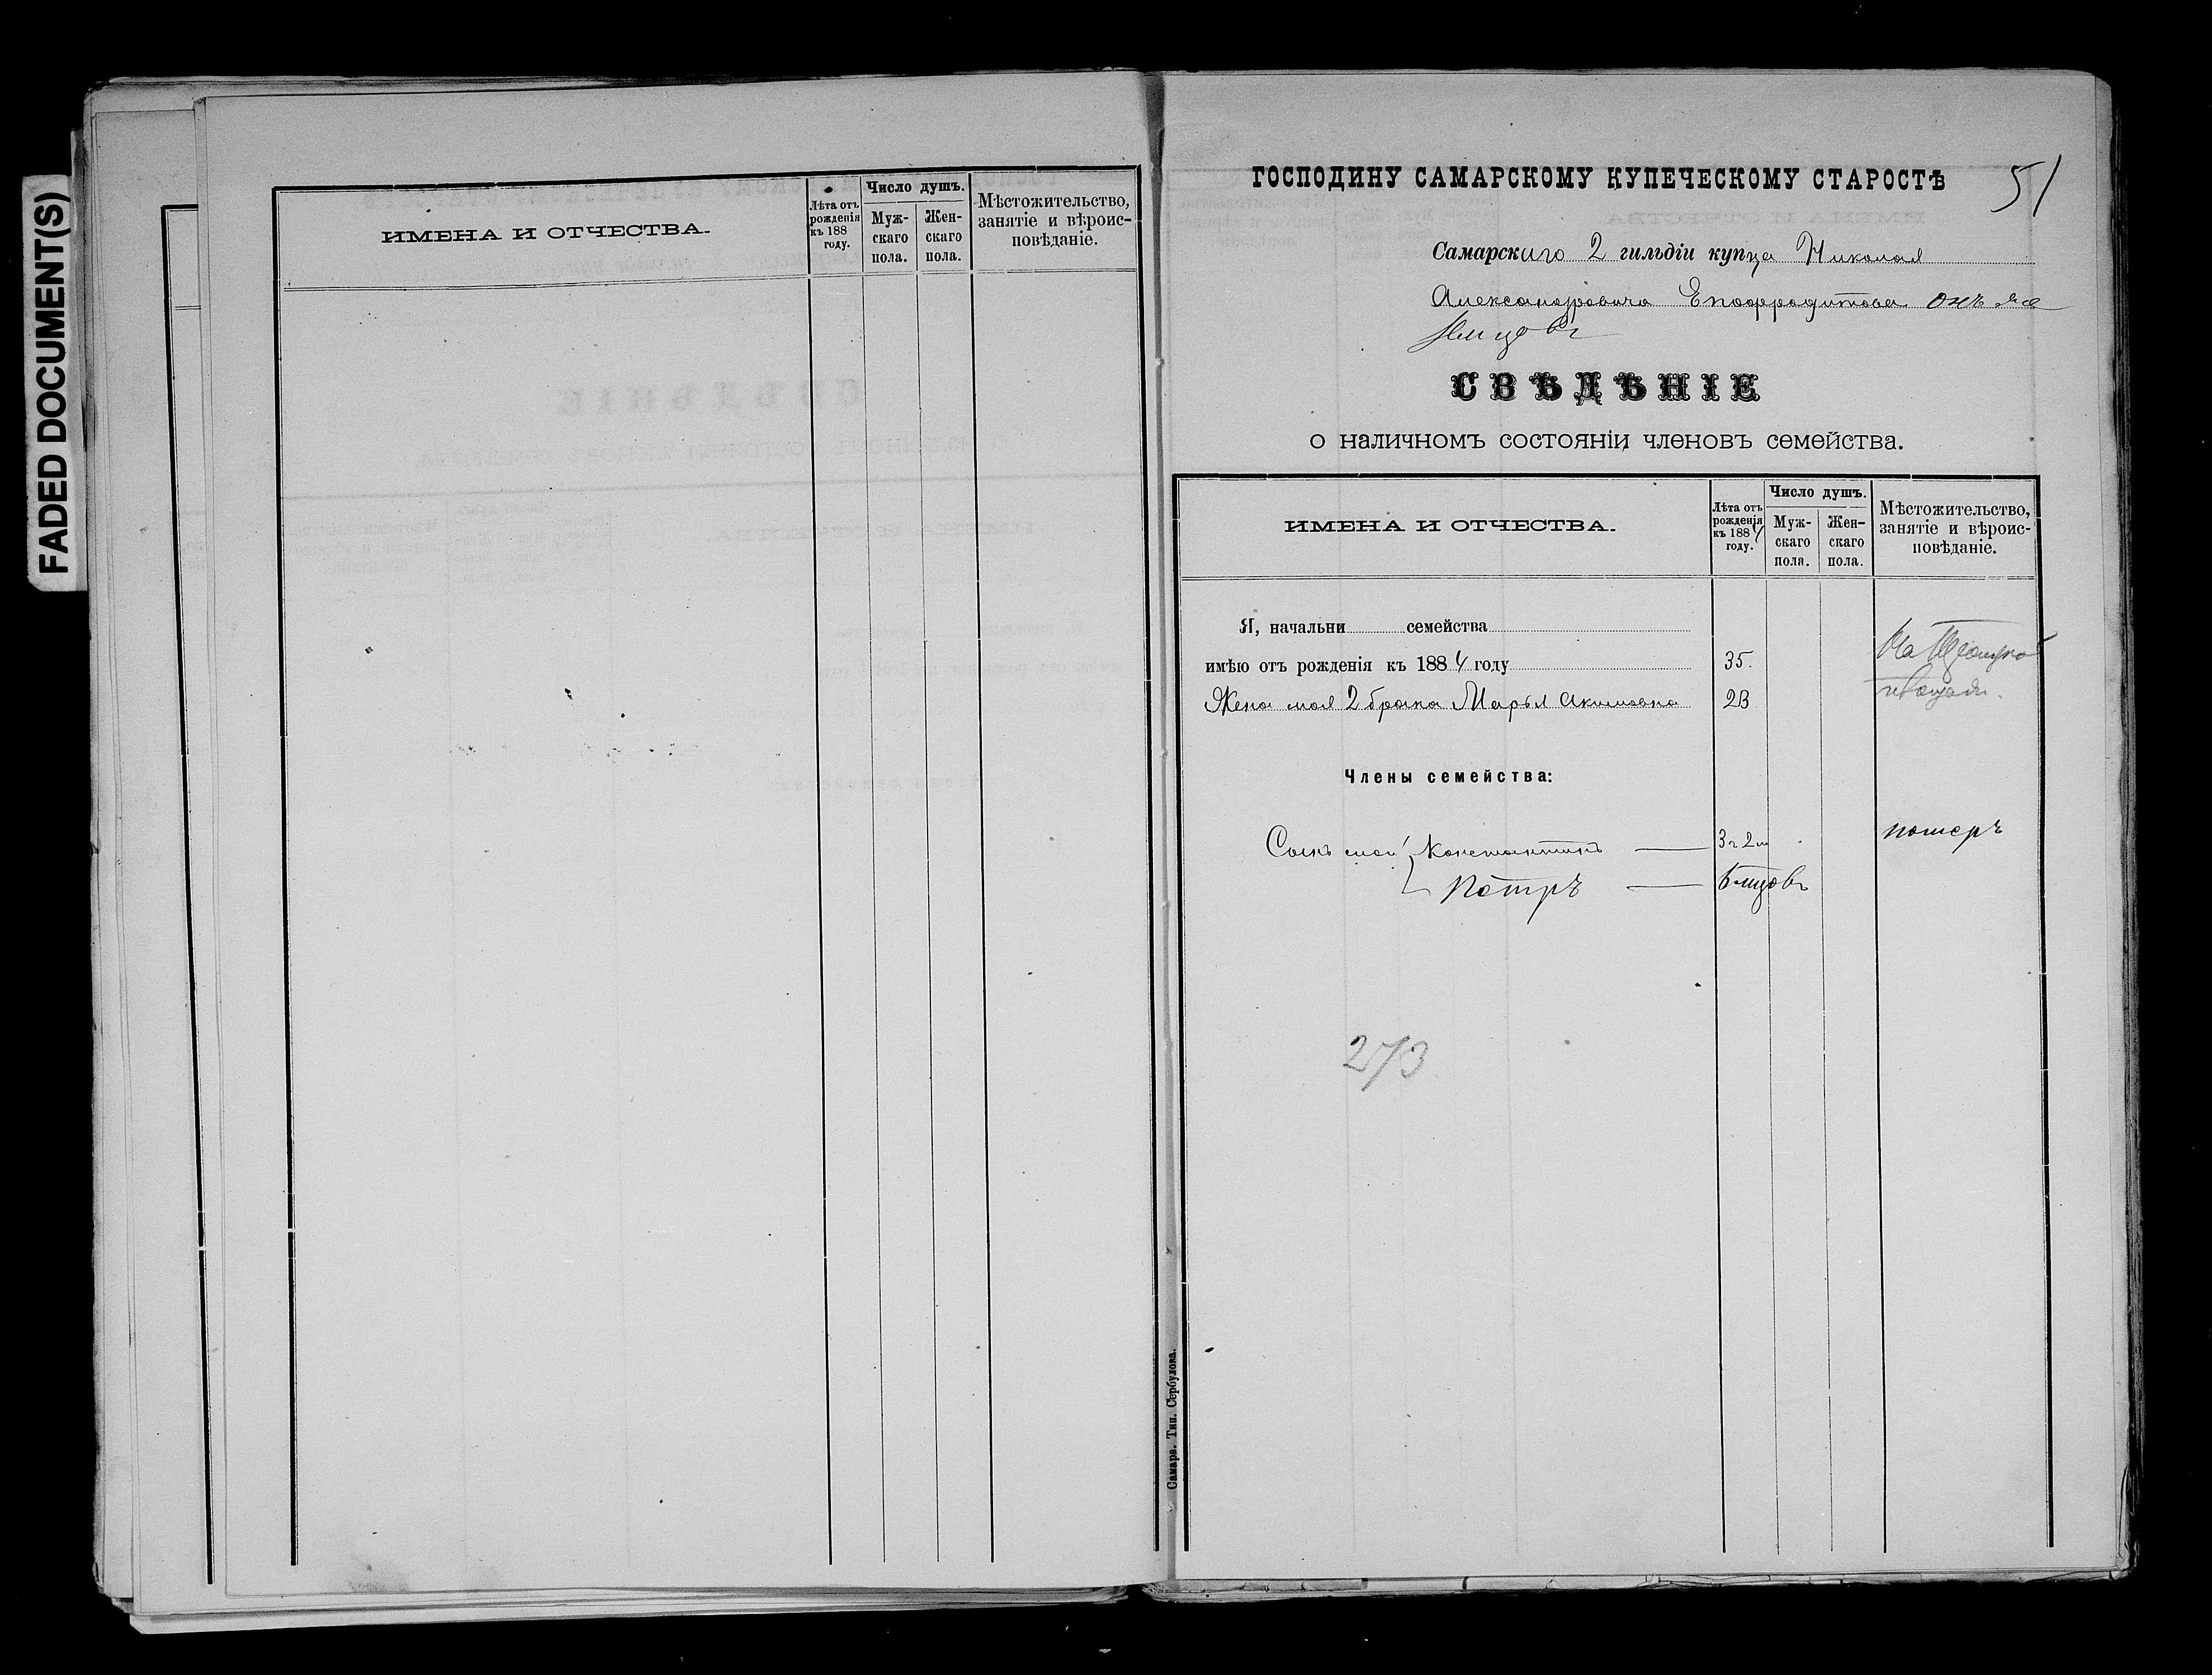 FADED DOCUMENT(S)
ИМЕНА И ОТЧЕСТВА.
Лѣта отъ рожденія къ 188 году.
Число душъ.
Мужскаго пола.
Женскаго пола.
Мѣстожительство, занятіе и вѣроисповѣданіе.
ГОСПОДИНУ САМАРСКОМУ КУПЕЧЕСКОМУ СТАРОСТѢ
51
Самарскаго 2 гильдіи купца Николая
Александровича Епафродитова онъ же
СВѢДѢНІЕ
о наличномъ состояніи членовъ семейства.
ИМЕНА И ОТЧЕСТВА.
Лѣта отъ рожденія къ 1884 году.
Число душъ.
Мужскаго пола.
Женскаго пола.
Мѣстожительство, занятіе и вѣроисповѣданіе.
Я, начальни семейства
имѣю отъ рожденія къ 1884 году 35. На Троицкой
Жена моя 2 брака Марья Акимовна 23 площади.
Члены семейства:
Сынъ мой Константинъ — 3 г 2 м померъ
Петръ — 6 мцовъ
273
Самара. Тип. Сербулова.